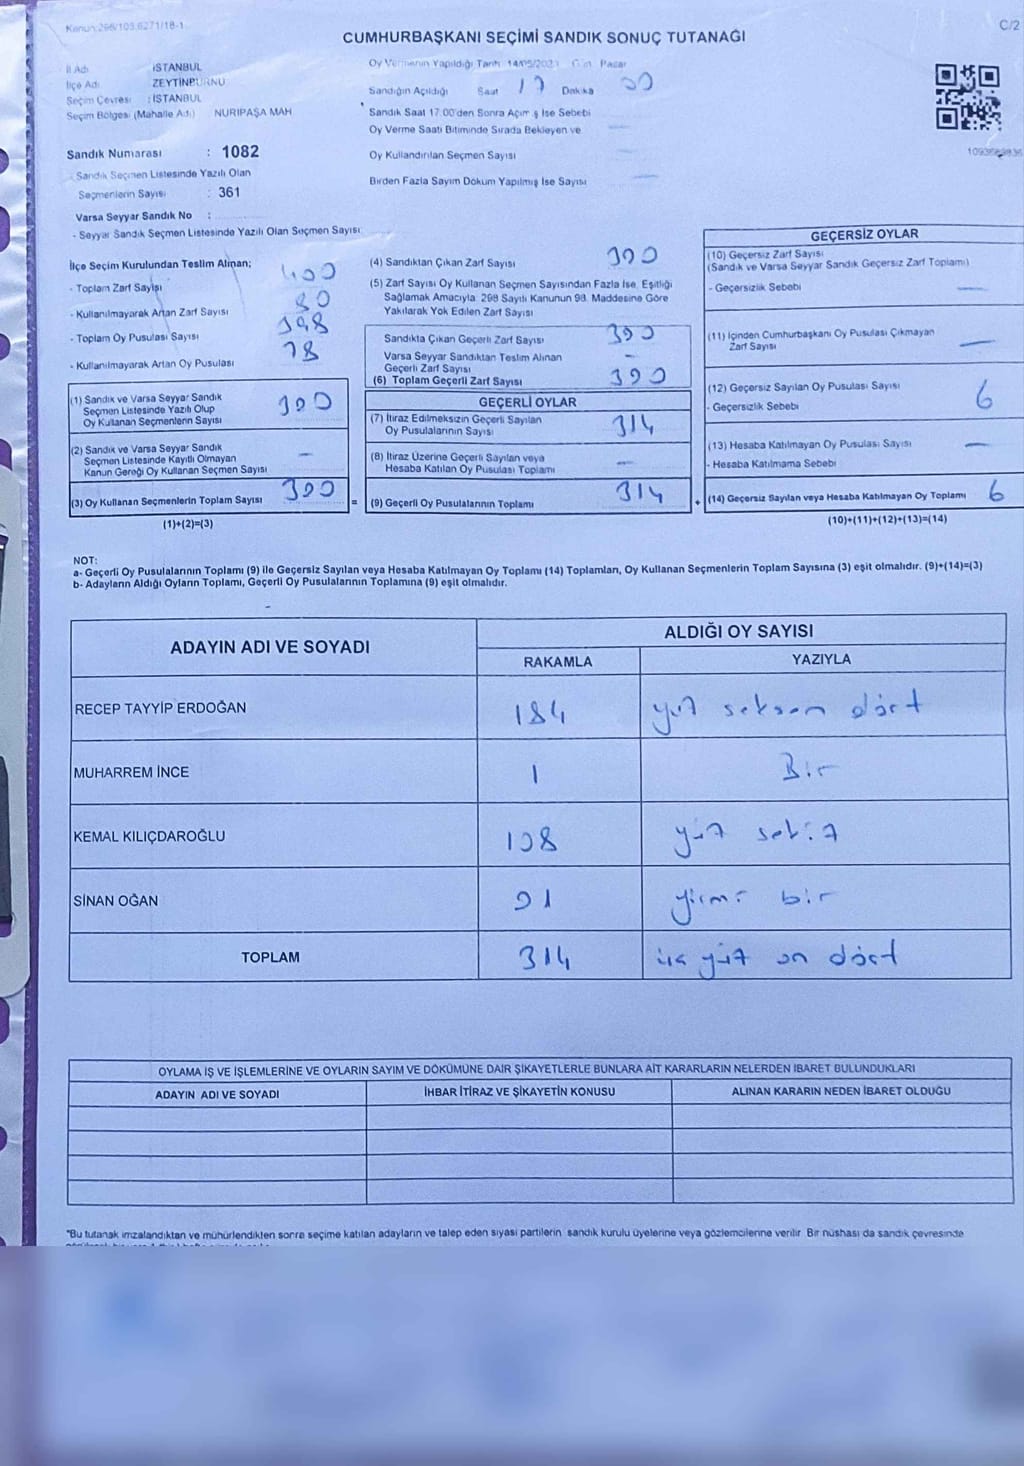 Kanun:298/103,6271/18-1
C/2
CUMHURBAŞKANI SEÇİMİ SANDIK SONUÇ TUTANAĞI
İl Adı : İSTANBUL
İlçe Adı : ZEYTİNBURNU
Seçim Çevresi : İSTANBUL
Seçim Bölgesi (Mahalle Adı) NURİPAŞA MAH
Sandık Numarası : 1082
- Sandık Seçmen Listesinde Yazılı Olan
Seçmenlerin Sayısı : 361
Varsa Seyyar Sandık No :
- Seyyar Sandık Seçmen Listesinde Yazılı Olan Seçmen Sayısı:
Oy Vermenin Yapıldığı Tarih 14/05/2023 Gün Pazar
Sandığın Açıldığı Saat 17 Dakika 00
Sandık Saat 17:00'den Sonra Açılmış İse Sebebi
Oy Verme Saati Bitiminde Sırada Bekleyen ve
Oy Kullandırılan Seçmen Sayısı
Birden Fazla Sayım Döküm Yapılmış İse Sayısı
İlçe Seçim Kurulundan Teslim Alınan;
- Toplam Zarf Sayısı 400
- Kullanılmayarak Artan Zarf Sayısı 80
- Toplam Oy Pusulası Sayısı 398
- Kullanılmayarak Artan Oy Pusulası 78
(1) Sandık ve Varsa Seyyar Sandık
Seçmen Listesinde Yazılı Olup
Oy Kullanan Seçmenlerin Sayısı 320
(2) Sandık ve Varsa Seyyar Sandık
Seçmen Listesinde Kayıtlı Olmayan
Kanun Gereği Oy Kullanan Seçmen Sayısı -
(3) Oy Kullanan Seçmenlerin Toplam Sayısı 320 =
(1)+(2)=(3)
(4) Sandıktan Çıkan Zarf Sayısı 320
(5) Zarf Sayısı Oy Kullanan Seçmen Sayısından Fazla İse, Eşitliği
Sağlamak Amacıyla 298 Sayılı Kanunun 98. Maddesine Göre
Yakılarak Yok Edilen Zarf Sayısı
Sandıkta Çıkan Geçerli Zarf Sayısı 320
Varsa Seyyar Sandıktan Teslim Alınan
Geçerli Zarf Sayısı -
(6) Toplam Geçerli Zarf Sayısı 320
GEÇERLİ OYLAR
(7) İtiraz Edilmeksizin Geçerli Sayılan
Oy Pusulalarının Sayısı 314
(8) İtiraz Üzerine Geçerli Sayılan veya
Hesaba Katılan Oy Pusulası Toplamı -
(9) Geçerli Oy Pusulalarının Toplamı 314 +
GEÇERSİZ OYLAR
(10) Geçersiz Zarf Sayısı
(Sandık ve Varsa Seyyar Sandık Geçersiz Zarf Toplamı)
- Geçersizlik Sebebi -
(11) İçinden Cumhurbaşkanı Oy Pusulası Çıkmayan
Zarf Sayısı -
(12) Geçersiz Sayılan Oy Pusulası Sayısı 6
- Geçersizlik Sebebi
(13) Hesaba Katılmayan Oy Pusulası Sayısı -
- Hesaba Katılmama Sebebi
(14) Geçersiz Sayılan veya Hesaba Katılmayan Oy Toplamı 6
(10)+(11)+(12)+(13)=(14)
NOT:
a- Geçerli Oy Pusulalarının Toplamı (9) ile Geçersiz Sayılan veya Hesaba Katılmayan Oy Toplamı (14) Toplamları, Oy Kullanan Seçmenlerin Toplam Sayısına (3) eşit olmalıdır. (9)+(14)=(3)
b- Adayların Aldığı Oyların Toplamı, Geçerli Oy Pusulalarının Toplamına (9) eşit olmalıdır.
ADAYIN ADI VE SOYADI ALDIĞI OY SAYISI
RAKAMLA YAZIYLA
RECEP TAYYİP ERDOĞAN 184 yüz seksen dört
MUHARREM İNCE 1 Bir
KEMAL KILIÇDAROĞLU 108 yüz sekiz
SİNAN OĞAN 21 yirmi bir
TOPLAM 314 üç yüz on dört
OYLAMA İŞ VE İŞLEMLERİNE VE OYLARIN SAYIM VE DÖKÜMÜNE DAİR ŞİKAYETLERLE BUNLARA AİT KARARLARIN NELERDEN İBARET BULUNDUKLARI
ADAYIN ADI VE SOYADI İHBAR İTİRAZ VE ŞİKAYETİN KONUSU ALINAN KARARIN NEDEN İBARET OLDUĞU
*Bu tutanak imzalandıktan ve mühürlendikten sonra seçime katılan adayların ve talep eden siyasi partilerin sandık kurulu üyelerine veya gözlemcilerine verilir Bir nüshası da sandık çevresinde